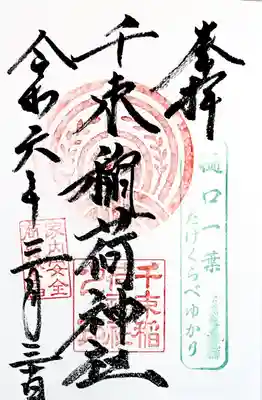 奉拝
樋口一葉
たけくらべゆかり
千束稲荷神社
千束稲
荷神社
家内安全
令和六年三月三日